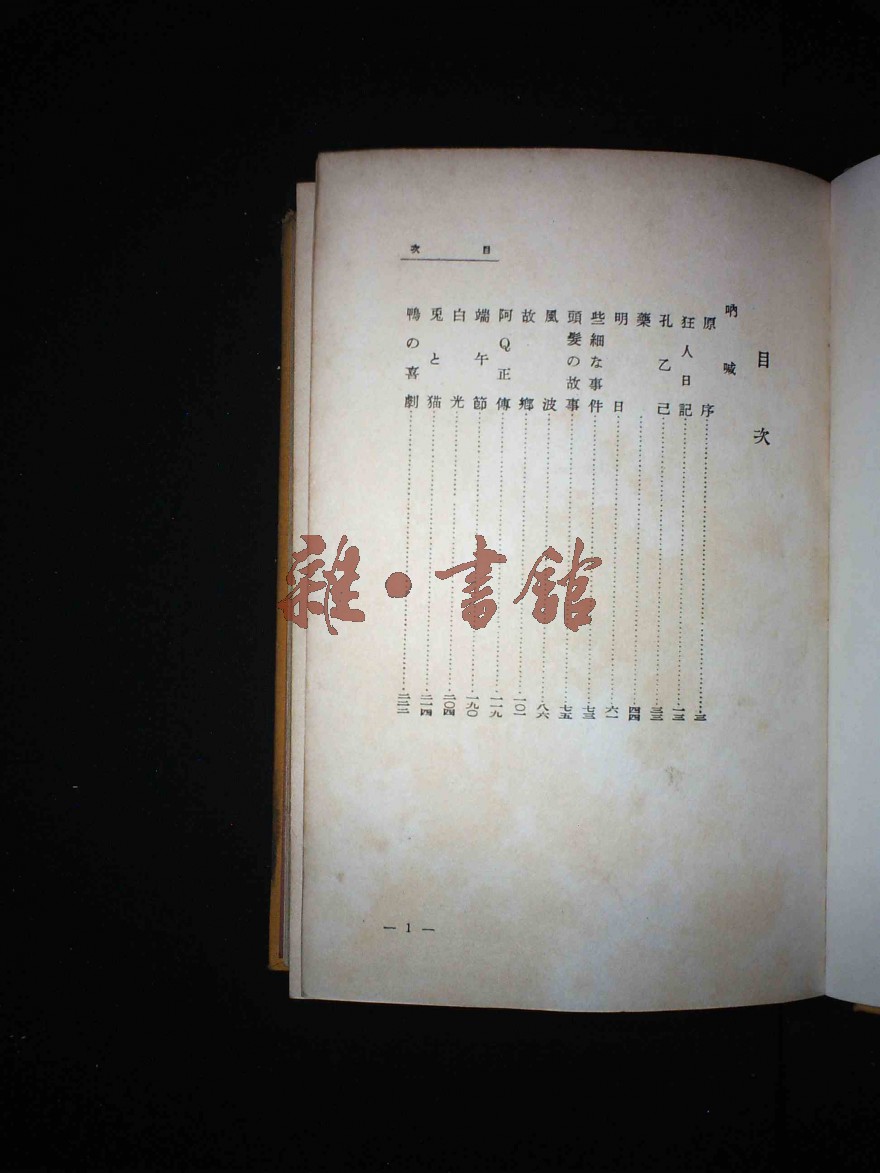 目次
目次
吶喊
原序……三
狂人日記……一三
孔乙己……三三
藥……四四
明日……六一
些細な事件……七三
頭髮の故事……七五
風波……八六
故鄉……一〇一
阿Q正傳……一一九
端午節……一九〇
白光……二〇四
兎と猫……二一四
鴨の喜劇……二二二
— 1 —
雜・書館